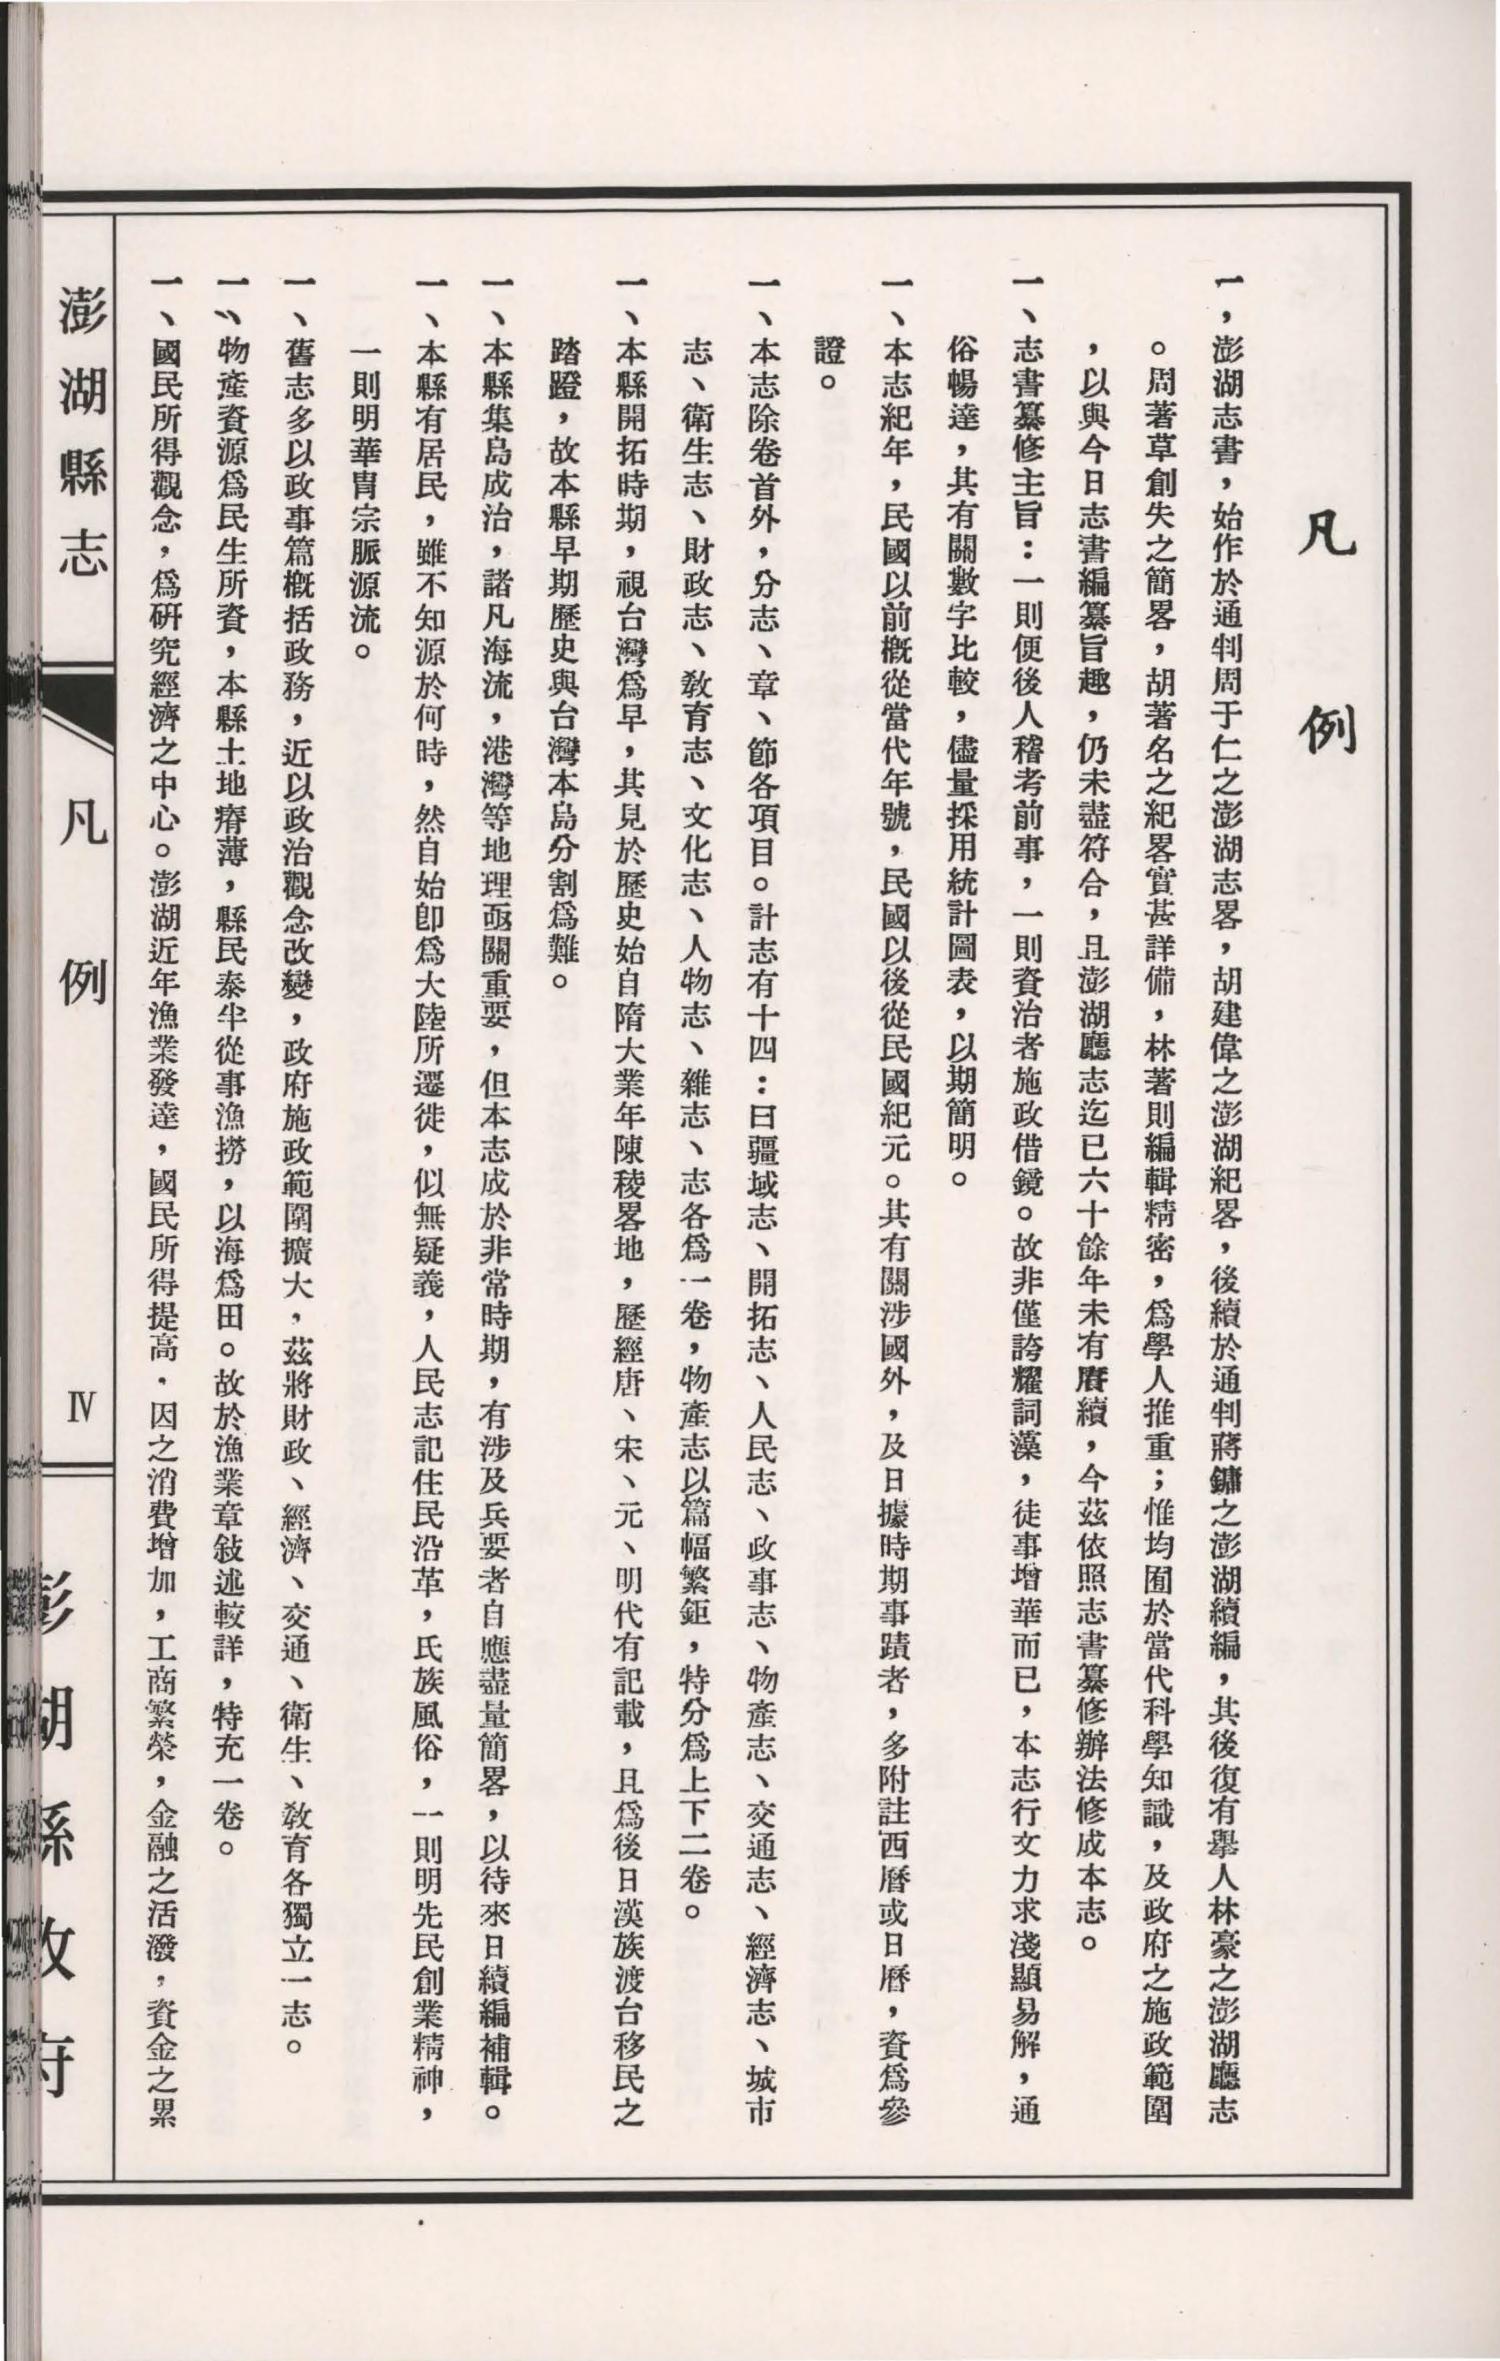 凡例
一，澎湖志書，始作於通判周于仁之澎湖志畧，胡建偉之澎湖紀畧，後續於通判蔣鏞之澎湖續編，其後復有舉人林豪之澎湖廳志
。周著草創失之簡畧，胡著名之紀畧實甚詳備，林著則編輯精密，爲學人推重；惟均囿於當代科學知識，及政府之施政範圍
，以與今日志書編纂旨趣，仍未盡符合，且澎湖廳志迄已六十餘年未有賡續，今茲依照志書纂修辦法修成本志。
一、志書纂修主旨：一則便後人稽考前事，一則資治者施政借鏡。故非僅誇耀詞藻，徒事增華而已，本志行文力求淺顯易解，通
俗暢達，其有關數字比較，儘量採用統計圖表，以期簡明。
一、本志紀年，民國以前概從當代年號，民國以後從民國紀元。其有關涉國外，及日據時期事蹟者，多附註西曆或日曆，資爲參
證。
一、本志除卷首外，分志、章、節各項目。計志有十四：曰疆域志、開拓志、人民志、政事志、物產志、交通志、經濟志、城市
志、衛生志、財政志、敎育志、文化志、人物志、雜志、志各爲一卷，物產志以篇幅繁鉅，特分爲上下二卷。
一、本縣開拓時期，視台灣爲早，其見於歷史始自隋大業年陳稜畧地，歷經唐、宋、元、明代有記載，且爲後日漢族渡台移民之
踏蹬，故本縣早期歷史與台灣本島分割爲難。
一、本縣集島成治，諸凡海流，港灣等地理亟關重要，但本志成於非常時期，有涉及兵要者自應盡量簡畧，以待來日續編補輯。
一、本縣有居民，雖不知源於何時，然自始卽爲大陸所遷徙，似無疑義，人民志記住民沿革，氏族風俗，一則明先民創業精神，
一則明華胄宗脈源流。
一、舊志多以政事篇概括政務，近以政治觀念改變，政府施政範圍擴大，茲將財政、經濟、交通、衛生、敎育各獨立一志。
一、物產資源爲民生所資，本縣土地瘠薄，縣民泰半從事漁撈，以海爲田。故於漁業章敍述較詳，特充一卷。
一、國民所得觀念，爲硏究經濟之中心。澎湖近年漁業發達，國民所得提高．因之消費增加，工商繁榮，金融之活潑，資金之累
澎湖縣志
凡例
IV
澎湖縣政府